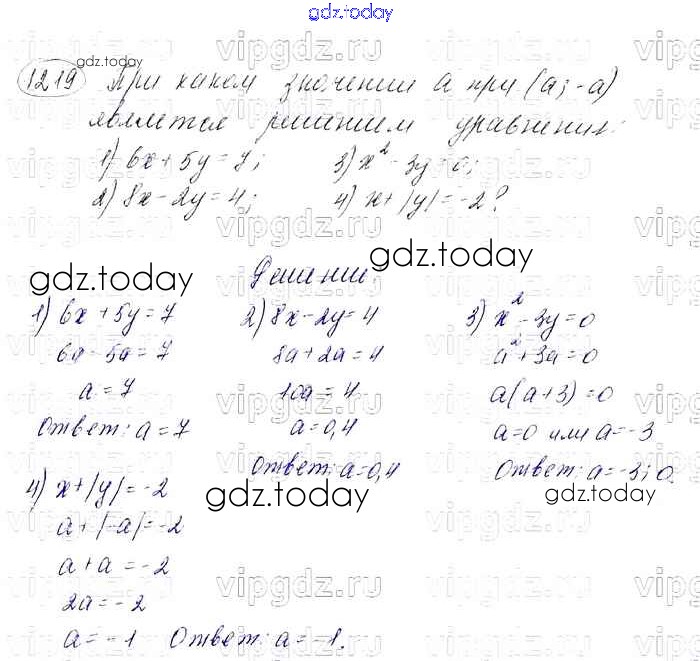 gdz.today
vipgdz.ru
gdz.today
1219 При каком значении a при (a; -a)
является решением уравнения:
1) 6x + 5y = 7; 3) x² - 3y = 0;
2) 8x - 2y = 4; 4) x + |y| = -2?
vipgdz.ru
gdz.today
gdz.today
Решение:
1) 6x + 5y = 7 2) 8x - 2y = 4 3) x² - 3y = 0
6a - 5a = 7 8a + 2a = 4 a² + 3a = 0
a = 7 10a = 4 a(a + 3) = 0
Ответ: a = 7 a = 0,4 a = 0 или a = -3
Ответ: a = 0,4 Ответ: a = -3; 0.
4) x + |y| = -2
gdz.today
gdz.today
a + |-a| = -2
a + a = -2
2a = -2
a = -1 Ответ: a = -1.